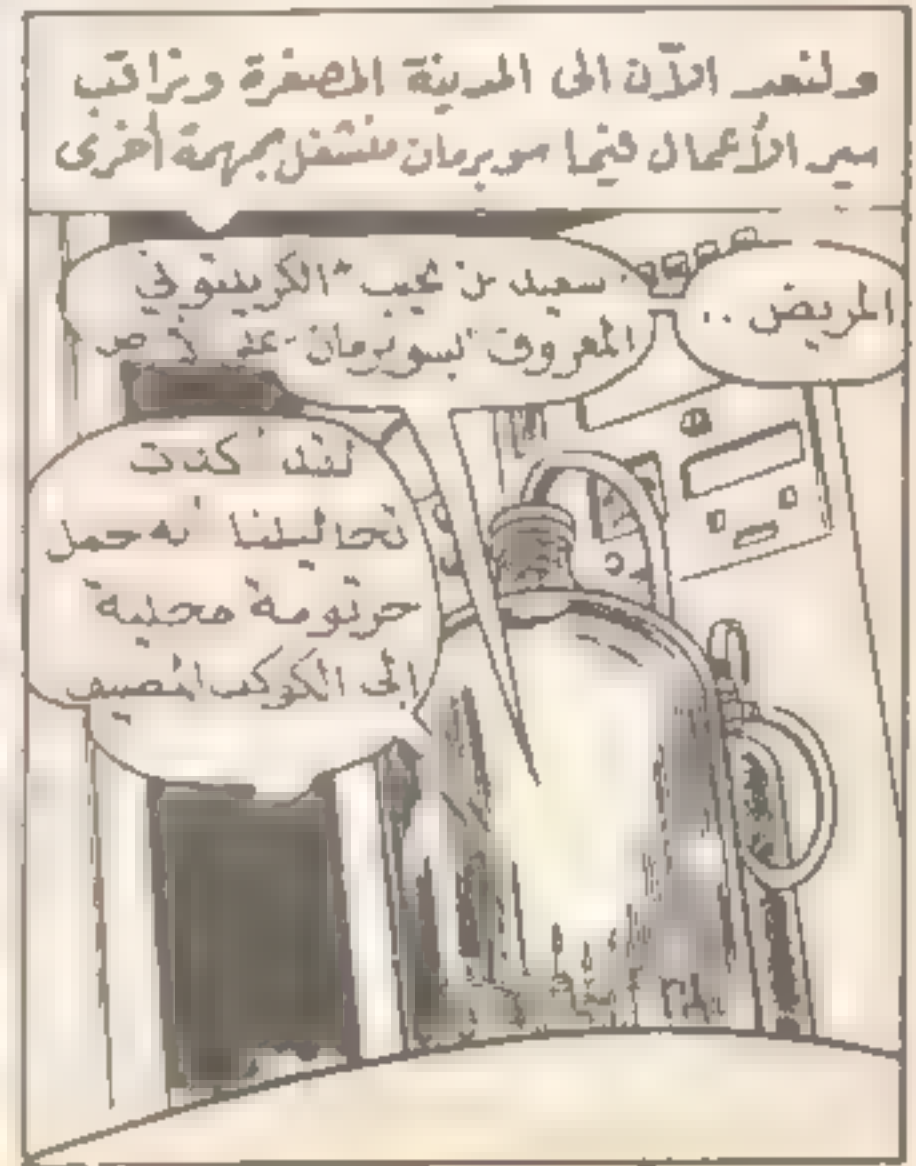 ولنعد الآن الى المدينة المصغرة ونراقب
سير الأعمال فيما سوبرمان منشغل بمهمة أخرى
المريض ..
المعروف بسوبرمان
لقد أكدت
تحاليلنا أنه حمل
جرثومة محلية
الى الكوكب المضيف